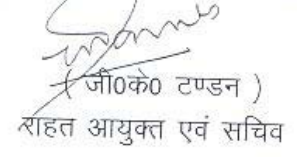 ( जी0के0 टण्डन )
राहत आयुक्त एवं सचिव